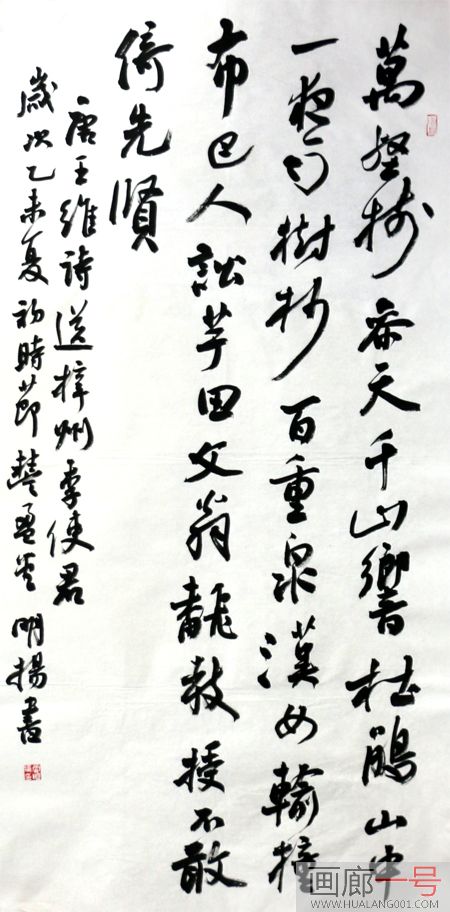 萬壑樹參天千山響杜鵑山中
一夜雨樹杪百重泉漢女輸橦
布巴人訟芋田文翁翻教授不敢
倚先賢
唐王維詩送梓州李使君
歲次乙未夏初時節明揚書
画廊一号
WWW.HUALANG001.COM